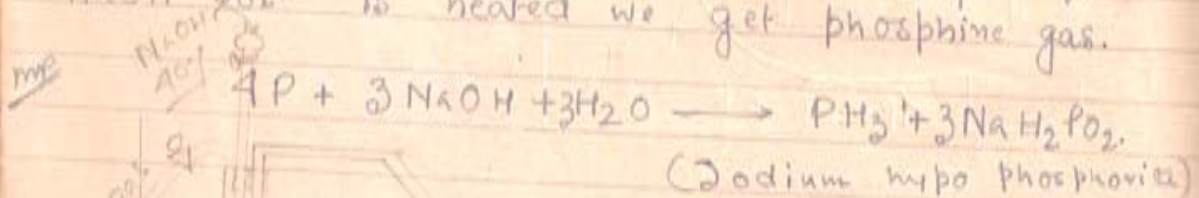 is heated we get phosphine gas.
NaOH
40%
4P + 3NaOH + 3H2O ⟶ PH3↑ + 3NaH2PO2.
(Sodium hypo phosphorite)